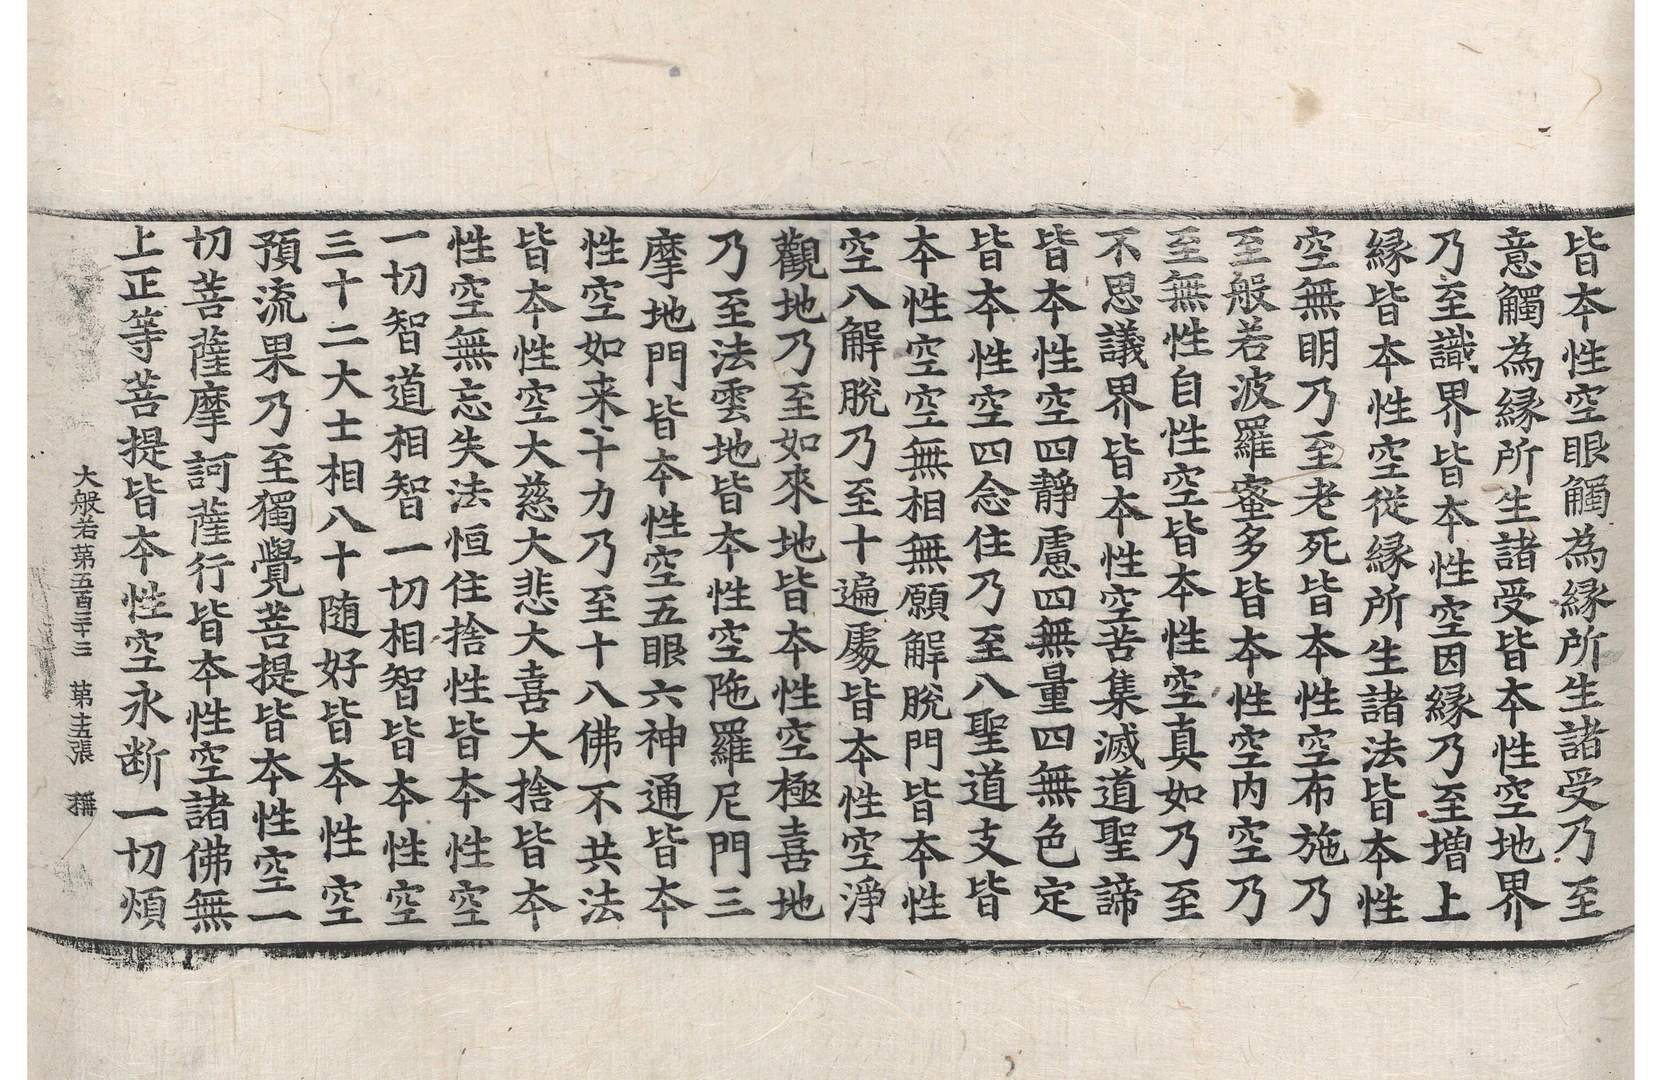 皆本性空眼觸為緣所生諸受乃至
意觸為緣所生諸受皆本性空地界
乃至識界皆本性空因緣乃至增上
緣皆本性空從緣所生諸法皆本性
空無明乃至老死皆本性空布施乃
至般若波羅蜜多皆本性空內空乃
至無性自性空皆本性空真如乃至
不思議界皆本性空苦集滅道聖諦
皆本性空四靜慮四無量四無色定
皆本性空四念住乃至八聖道支皆
本性空空無相無願解脫門皆本性
空八解脫乃至十遍處皆本性空淨
觀地乃至如來地皆本性空極喜地
乃至法雲地皆本性空陁羅尼門三
摩地門皆本性空五眼六神通皆本
性空如来十力乃至十八佛不共法
皆本性空大慈大悲大喜大捨皆本
性空無忘失法恒住捨性皆本性空
一切智道相智一切相智皆本性空
三十二大士相八十随好皆本性空
預流果乃至獨覺菩提皆本性空一
切菩薩摩訶薩行皆本性空諸佛無
上正等菩提皆本性空永断一切煩
大般若第五百三十三 第十五張 稱